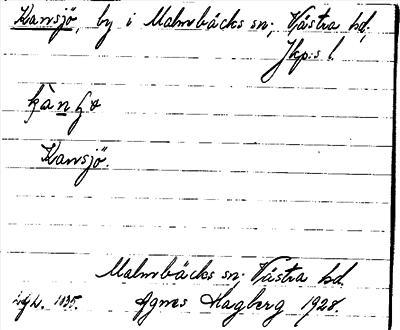 Kansjö, by i Malmbäcks sn; Västra hd,
Jkp:s l.
Kansjö.
Malmbäcks sn. Västra hd.
Agnes Hagberg 1928.